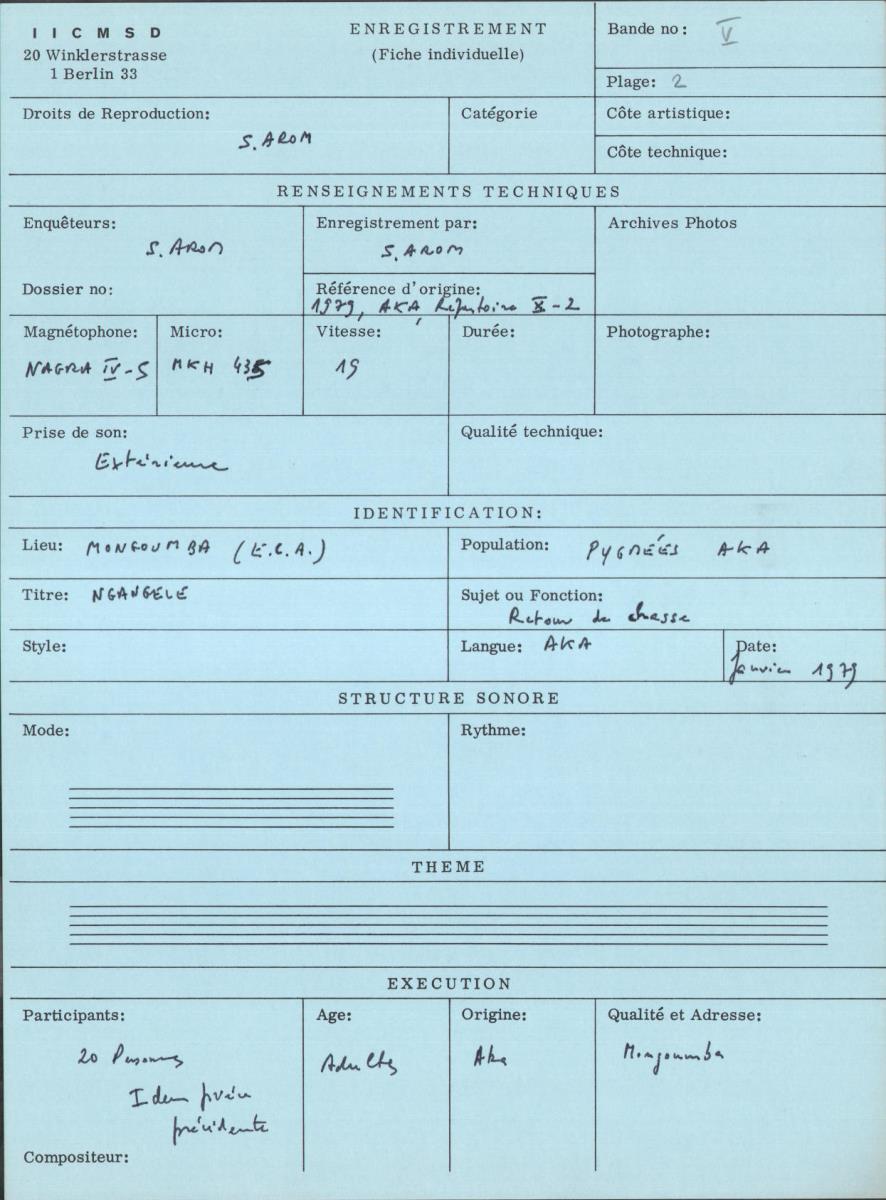 I I C M S D
20 Winklerstrasse
1 Berlin 33
ENREGISTREMENT
(Fiche individuelle)
Bande no: V
Plage: 2
Droits de Reproduction:
S. AROM
Catégorie
Côte artistique:
Côte technique:
RENSEIGNEMENTS TECHNIQUES
Enquêteurs:
S. AROM
Dossier no:
Enregistrement par:
S. AROM
Référence d'origine:
1979, AKA Répertoire X-2
Archives Photos
Magnétophone:
NAGRA IV-S
Micro:
MKH 435
Vitesse:
19
Durée:
Photographe:
Prise de son:
Extérieure
Qualité technique:
IDENTIFICATION:
Lieu: MONGOUMBA (E.C.A.)
Population: PYGMÉES AKA
Titre: NGANGELE
Sujet ou Fonction:
Retour de chasse
Style:
Langue: AKA
Date:
Janvier 1979
STRUCTURE SONORE
Mode:
Rythme:
THEME
EXECUTION
Participants:
20 Personnes
Idem pièce
précédente
Compositeur:
Age:
Adultes
Origine:
Aka
Qualité et Adresse:
Mongoumba